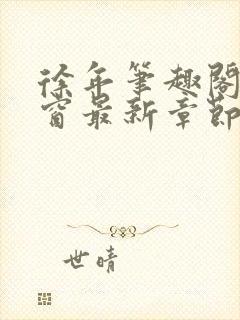 徐年笔趣阁
窗最新章节
世晴